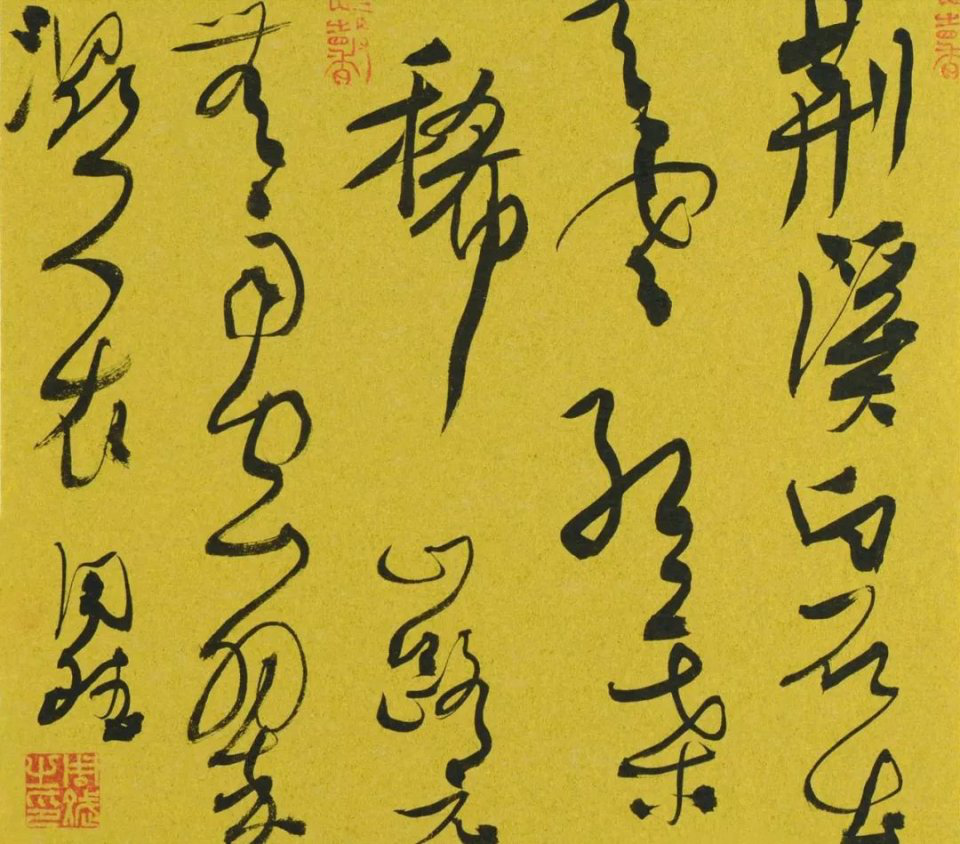 荆溪白石出
天寒紅葉
稀山路元
無雨空翠
濕人衣 周